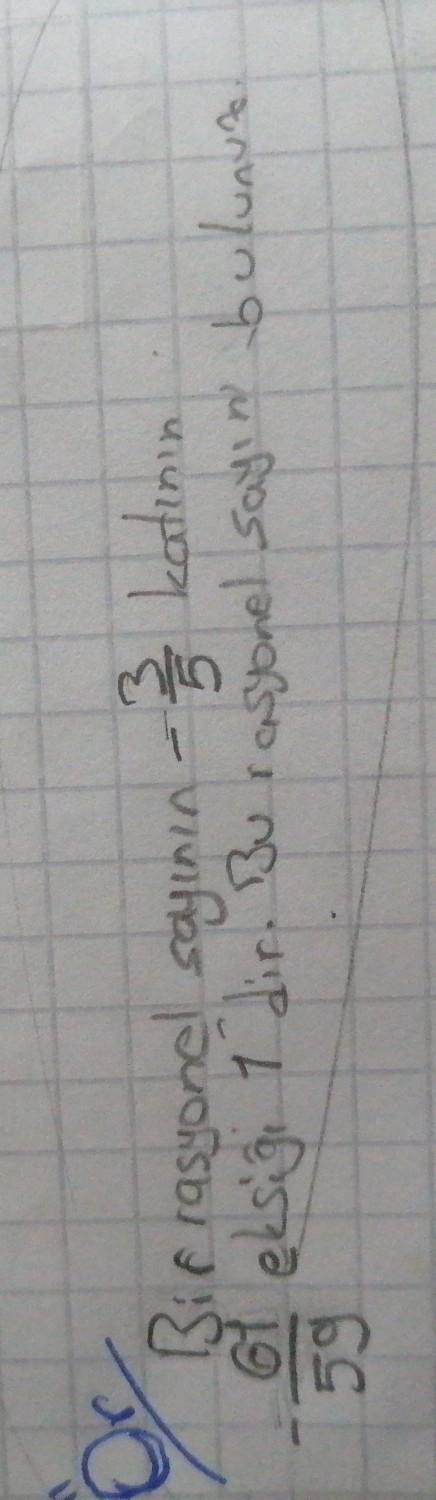 Ör/ Bir rasyonel sayının -3/5 katının
-61/59 eksiği 1 dir. Bu rasyonel sayın bulunuz.